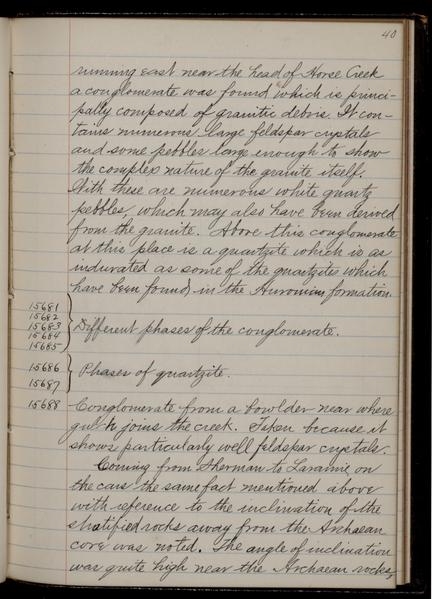 40
running east near the head of Horse Creek
a conglomerate was found which is princi-
pally composed of granitic debris. It con-
tains numerous large feldspar crystals
and some pebbles large enough to show
the complex nature of the granite itself.
With these are numerous white quartz
pebbles, which may also have been derived
from the granite. Above this conglomerate
at this place is a quartzite which is as
indurated as some of the quartzites which
have been found in the Huronian formation.
15681
15682
15683 Different phases of the conglomerate.
15684
15685
15686 Phases of quartzite.
15687
15688 Conglomerate from a bowlder near where
gulch joins the creek. Taken because it
shows particularly well feldspar crystals.
Coming from Sherman to Laramie on
the cars the same fact mentioned above
with reference to the inclination of the
stratified rocks away from the Archaean
core was noted. The angle of inclination
was quite high near the Archaean rocks,